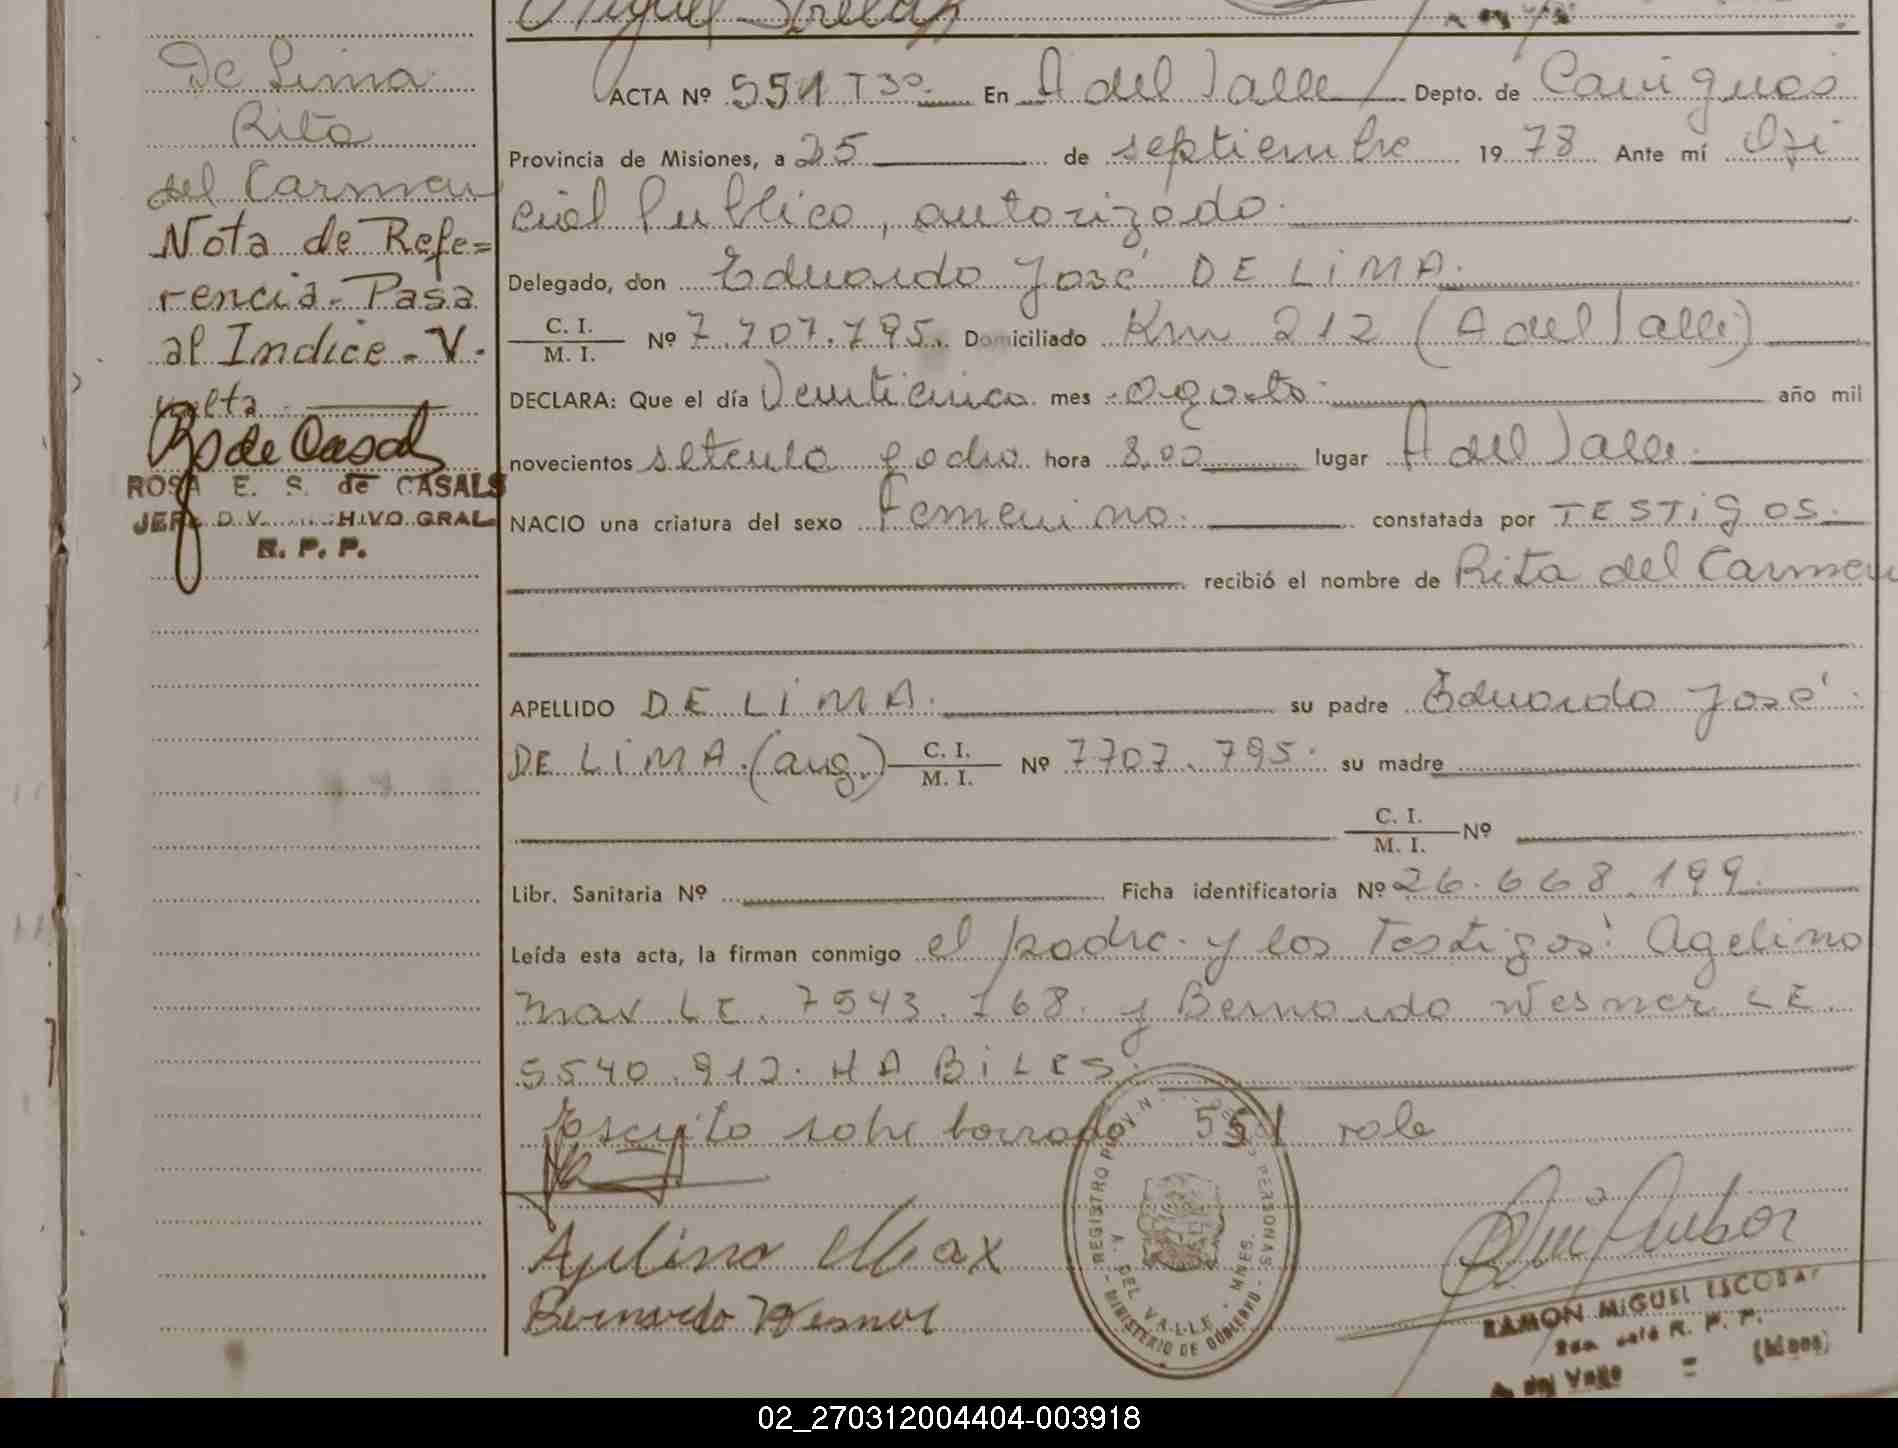 De Lima
Rita
del Carmen
Nota de Refe=
rencia. Pasa
al Indice. V.
vuelta
Rs de Casals
ROSA E. S. de CASALS
JEFE DIV. HIVO GRAL
R. P. P.
ACTA Nº 551 Tº 3º En A del Valle Depto. de Cainguas
Provincia de Misiones, a 25 de septiembre 1978 Ante mí Ofi
cial Publico, autorizado.
Delegado, don Eduardo José DE LIMA.
C. I. / M. I. Nº 7.707.795. Domiciliado Km 212 (A del Valle)
DECLARA: Que el día Veinticinco mes agosto año mil
novecientos setenta y ocho hora 8,00 lugar A del Valle.
NACIO una criatura del sexo Femenino. constatada por TESTIGOS.
recibió el nombre de Rita del Carmen
APELLIDO DE LIMA. su padre Eduardo José
DE LIMA. (arg.) C. I. / M. I. Nº 7707.795. su madre
C. I. / M. I. Nº
Libr. Sanitaria Nº Ficha identificatoria Nº 26.668.199.
Leída esta acta, la firman conmigo el padre y los Testigos: Agelino
Max LE. 7543.168. y Bernardo Wesner LE.
5540.912. HABILES.
Escrito sobre borrado 551 vale
Ajelino Max
Bernardo Wesner
REGISTRO PROV. PERSONAS
A. DEL VALLE - MNES.
MINISTERIO DE GOBIERNO
RAMON MIGUEL ESCOBAR
R. P. P.
A. del Valle = (Mnes)
02_270312004404-003918